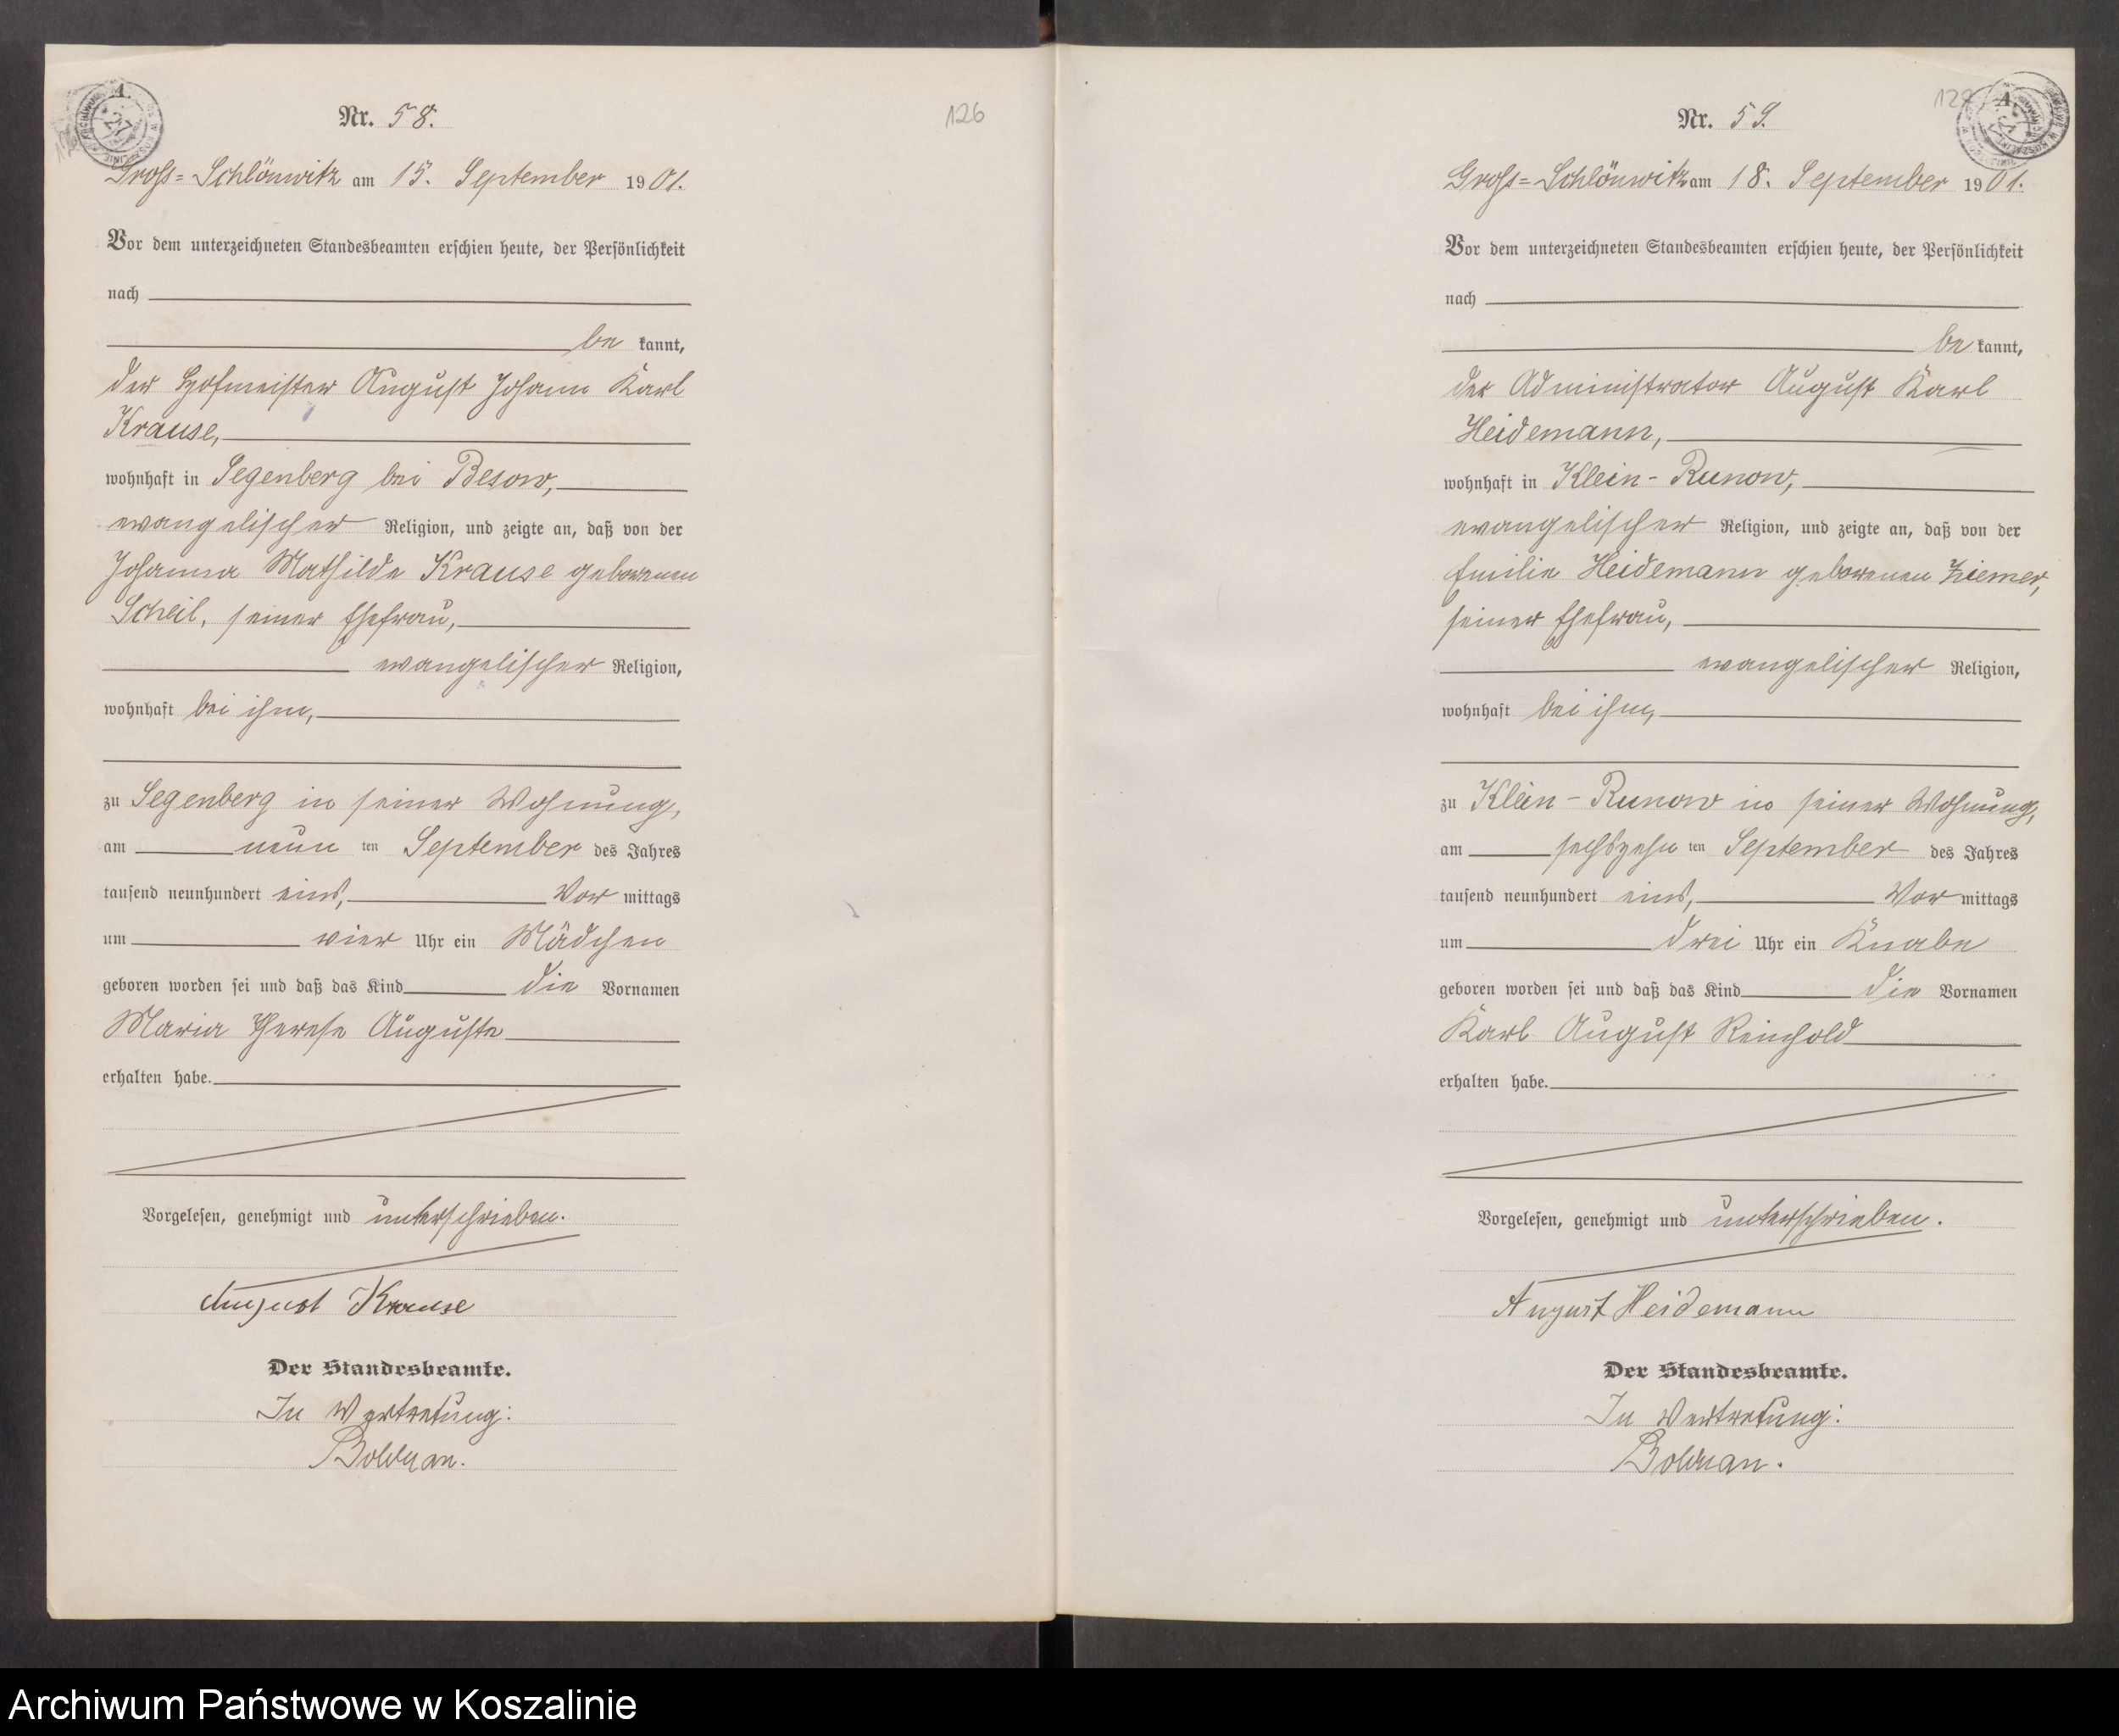 Nr. 58.
126
Gross=Schlönwitz am 15. September 1901.
Vor dem unterzeichneten Standesbeamten erschien heute, der Persönlichkeit
nach
be kannt,
der Hofmeister August Johann Karl
Krause,
wohnhaft in Segenberg bei Besow,
evangelischer Religion, und zeigte an, daß von der
Johanna Mathilde Krause geborenen
Scheil, seiner Ehefrau,
evangelischer Religion,
wohnhaft bei ihm,
zu Segenberg in seiner Wohnung,
am neun ten September des Jahres
tausend neunhundert eins, Vor mittags
um vier Uhr ein Mädchen
geboren worden sei und daß das Kind die Vornamen
Maria Therese Auguste
erhalten habe.
Vorgelesen, genehmigt und unterschrieben.
August Krause
Der Standesbeamte.
In Vertretung:
Bolduan.
Nr. 59.
Gross=Schlönwitz am 18. September 1901.
Vor dem unterzeichneten Standesbeamten erschien heute, der Persönlichkeit
nach
be kannt,
der Administrator August Karl
Heidemann,
wohnhaft in Klein-Runow,
evangelischer Religion, und zeigte an, daß von der
Emilie Heidemann geborenen Ziemer,
seiner Ehefrau,
evangelischer Religion,
wohnhaft bei ihm,
zu Klein-Runow in seiner Wohnung,
am sechszehn ten September des Jahres
tausend neunhundert eins, Vor mittags
um drei Uhr ein Knabe
geboren worden sei und daß das Kind die Vornamen
Karl August Reinhold
erhalten habe.
Vorgelesen, genehmigt und unterschrieben.
August Heidemann
Der Standesbeamte.
In Vertretung:
Bolduan.
Archiwum Państwowe w Koszalinie